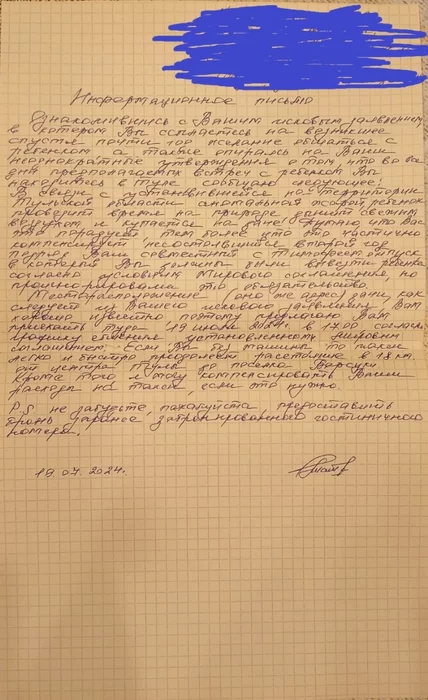 Информационное письмо
Ознакомившись с Вашим исковым заявлением,
в котором Вы сослались на возникшее
спустя почти год желание общаться с
ребенком а также опираясь на Ваши
неоднократные утверждения о том, что во все
дни предполагаемых встреч с ребенком Вы
находитесь в Туле сообщаю следующее:
В связи с установившейся на территории
Тульской области аномальной жарой, ребенок
проводит время на природе, дышит свежим
воздухом и купается на даче. Думаю что Вас
это порадует тем более что это частично
компенсирует несостоявшийся второй год
подряд Ваш совместный с Тимофеем отпуск
в который Вы должны были вывезти ребенка
согласно условиям Мирового соглашения, но
проигнорировали это обязательство.
Месторасположение (оно же адрес) дачи, как
следует из Вашего искового заявления, Вам
хорошо известно поэтому предлагаю Вам
приехать туда 19 июля 2024г. в 17.00 согласно
графику общения установленному мировым
соглашением. Если Вы без машины то такси
легко и быстро преодолеет расстояние в 18 км.
от центра Тулы до поселка
Кроме того я могу компенсировать Ваши
расходы на такси, если это нужно.
P.S. не забудьте, пожалуйста, предоставить
бронь заранее забронированного гостиничного
номера.
19.07.2024г.